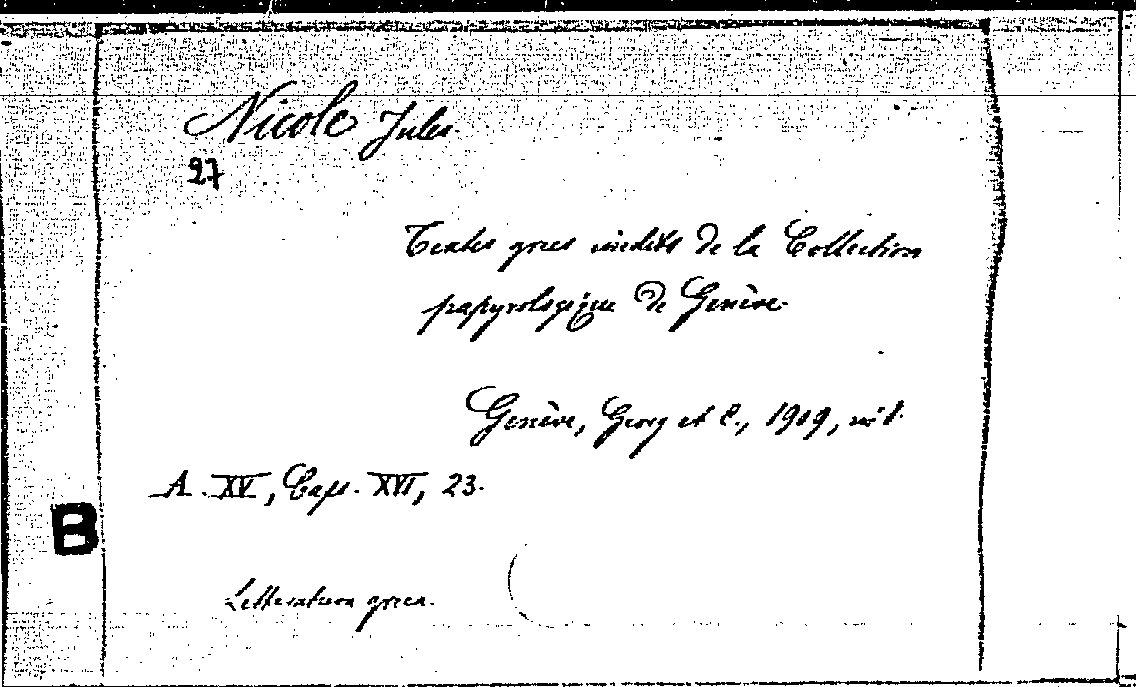 Nicole Jules
27
Textes grecs inédits de la Collection
papyrologique de Genève.
Genève, Georg et C., 1909, in 4.
A. XV, Caps. XVI, 23.
B
Letteratura greca.